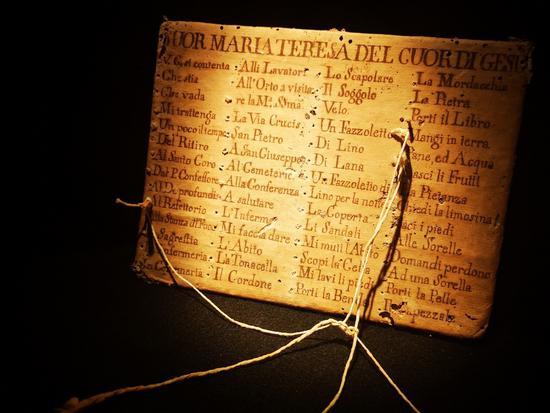 SUOR MARIA TERESA DEL CUOR DI GESU
V. G. si contenta
Che stia
Che vada
Mi trattenga
Un poco il tempo
Del Ritiro
Al Santo Coro
Dal P. Confessore
Al De profundis
Al Refettorio
Alla Stanza di
Sagrestia
Infermeria
Alli Lavatori
All'Orto a visita
re la Mª. Sma
La Via Crucis
San Pietro
A San Giuseppe
Al Cemeterio
Alla Conferenza
A salutare
L'Inferma
Mi faccia dare
L'Abito
La Tonacella
Il Cordone
Lo Scapolare
Il Soggolo
Velo
Un Fazzoletto
Di Lino
Di Lana
Un Fazzoletto di
Lino per la notte
La Coperta
Li Sandali
Mi muti l'Abito
Scopi la Cella
Mi lavi li piedi
Porti la
La Mordacchia
La Pietra
Porti il Libro
Mangi in terra
Pane, ed Acqua
Lasci li Frutti
Pietanza
la limosina
i piedi
Alle Sorelle
Domandi perdono
Ad una Sorella
Porti la Pelle